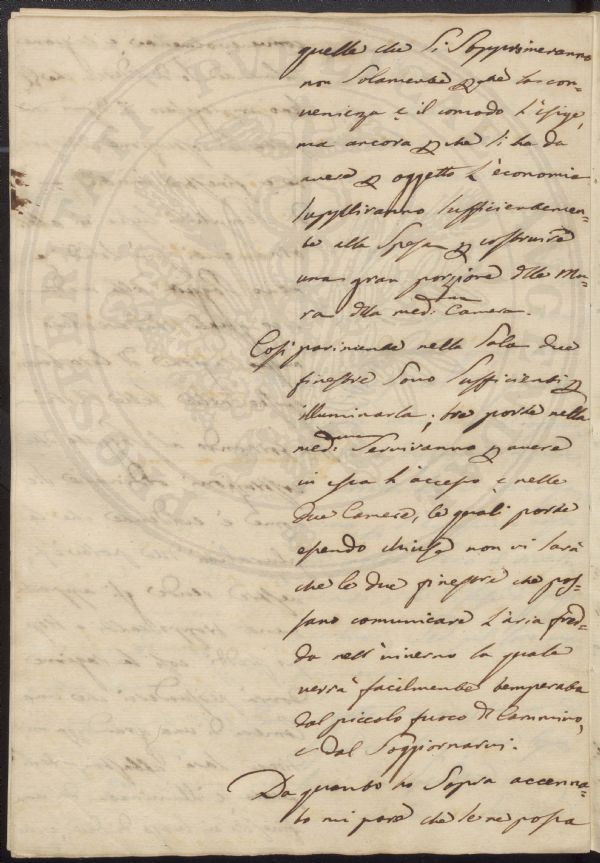 quelle che si sopprimeranno
non solamente p che la con-
venienza e il comodo l'esige,
ma ancora p che si ha da
avere p oggetto l'economia
suppliranno sufficientemen-
te alla spesa p costruire
una gran porzione dlle Mu-
ra dlla med:ma Camera.
Così parimente nella Sala due
finestre sono sufficienti p
illuminarla; tre porte nella
med:ma serviranno p avere
in essa l'accesso e nelle
due Camere, le quali porte
essendo chiuse non vi sarà
che le due finestre che pos-
sano comunicare l'aria fred-
da nell'inverno la quale
verrà facilmente temperata
dal piccolo fuoco di Cammino,
e dal soggiornarvi.
Da quanto ho sopra accenna-
to mi pare che se ne possa